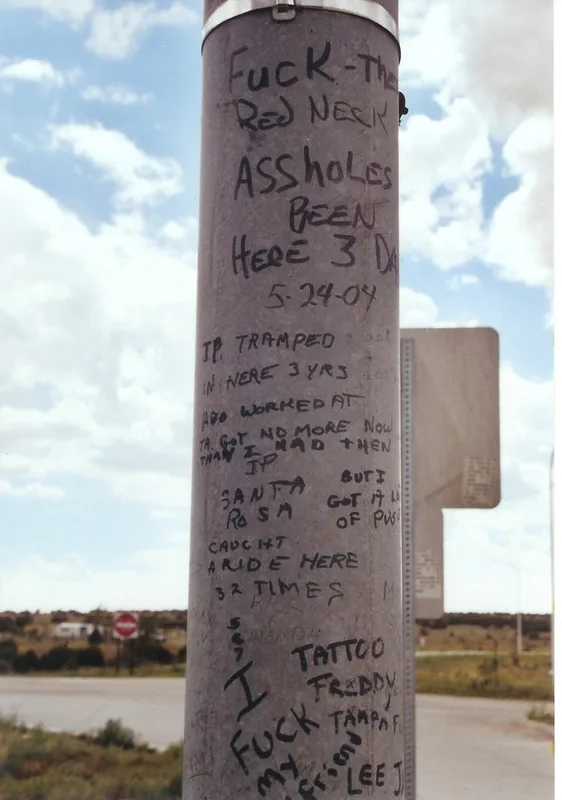 FUCK-THE
RED NECK
ASSHOLES
BEEN
HERE 3 DA
5-24-04
IP. TRAMPED
IN HERE 3 YRS
AGO WORKED AT
TA. GOT NO MORE NOW
THAN I HAD THEN
IP
SANTA
ROSA
BUT I
GOT A LO
OF PUS
CAUGHT
A RIDE HERE
32 TIMES
5
6
7
TATTOO
FREDDY
TAMPA F
I
FUCK
MY
friend
LEE J